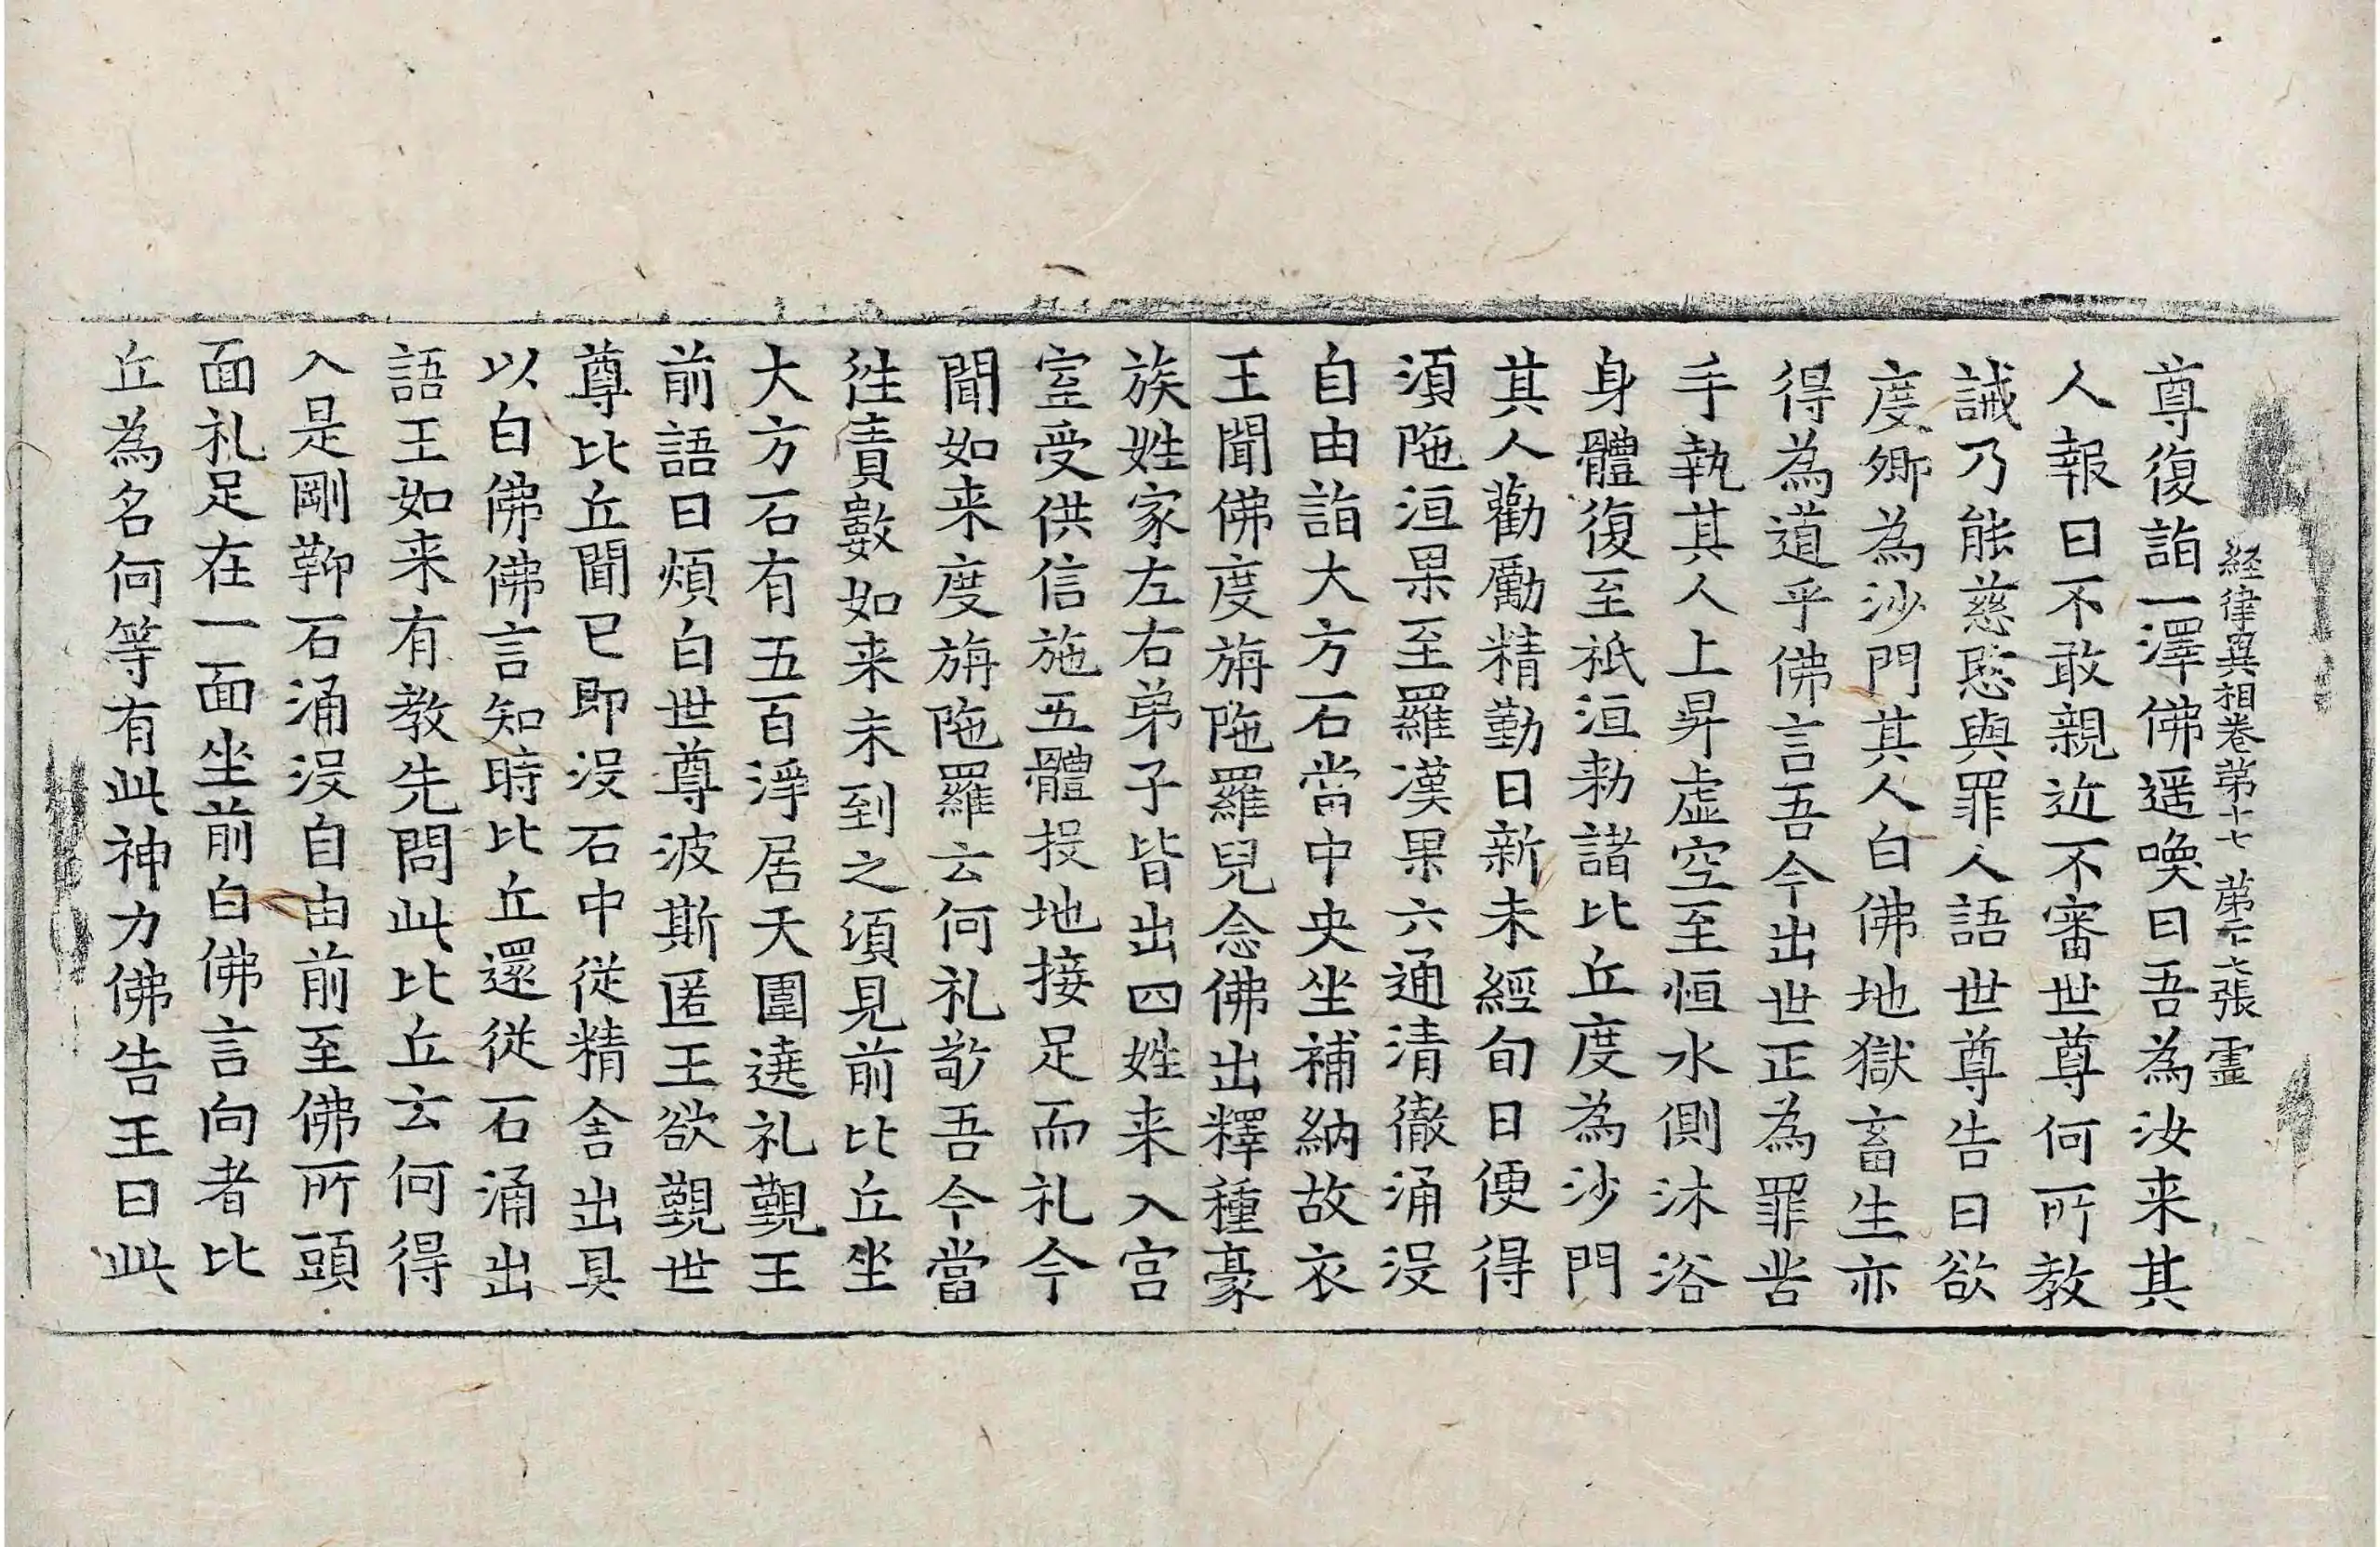 経律異相卷第十七 第二十六張 霊
尊復詣一澤佛遥喚曰吾為汝来其
人報曰不敢親近不審世尊何所教
誡乃能慈愍與罪人語世尊告曰欲
度卿為沙門其人白佛地獄畜生亦
得為道乎佛言吾今出世正為罪苦
手執其人上昇虚空至恒水側沐浴
身體復至祇洹勑諸比丘度為沙門
其人勸勵精勤日新未經旬日便得
湏陁洹果至羅漢果六通清徹涌没
自由詣大方石當中央坐補納故衣
王聞佛度旃陁羅兒念佛出釋種豪
族姓家左右弟子皆出四姓来入宫
室受供信施五體投地接足而礼今
聞如来度旃陁羅云何礼敬吾今當
徃責數如来未到之湏見前比丘坐
大方石有五百淨居天圍遶礼覲王
前語曰煩白世尊波斯匿王欲覲世
尊比丘聞已即没石中従精舎出具
以白佛佛言知時比丘還従石涌出
語王如来有教先問此比丘云何得
入是剛鞕石涌没自由前至佛所頭
面礼足在一面坐前白佛言向者比
丘為名何等有此神力佛告王曰此